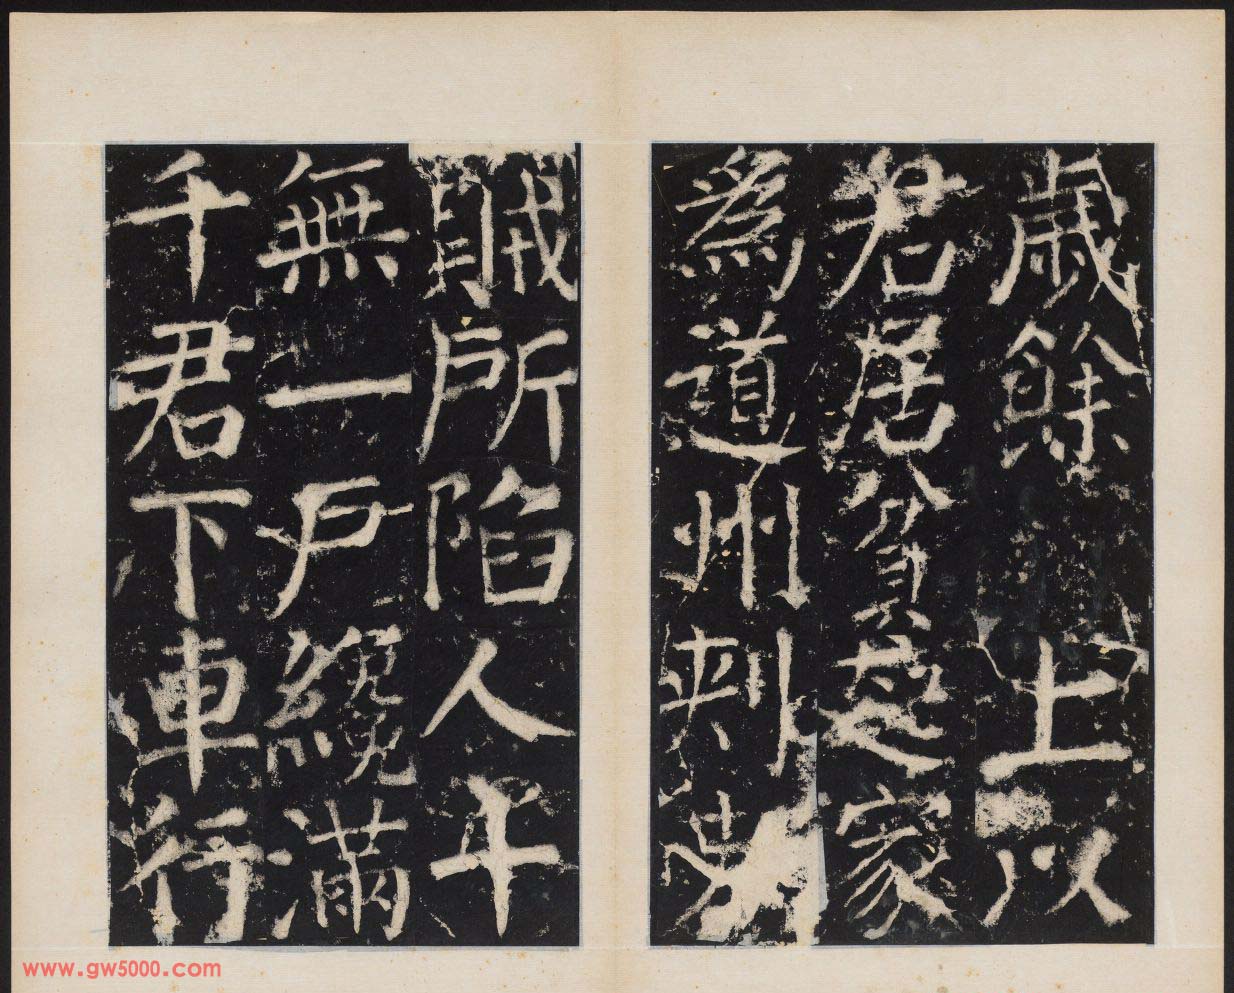 歲餘上以
君居貧起家
爲道州刺史
賊所陷人十
無一戶纔滿
千君下車行
www.gw5000.com